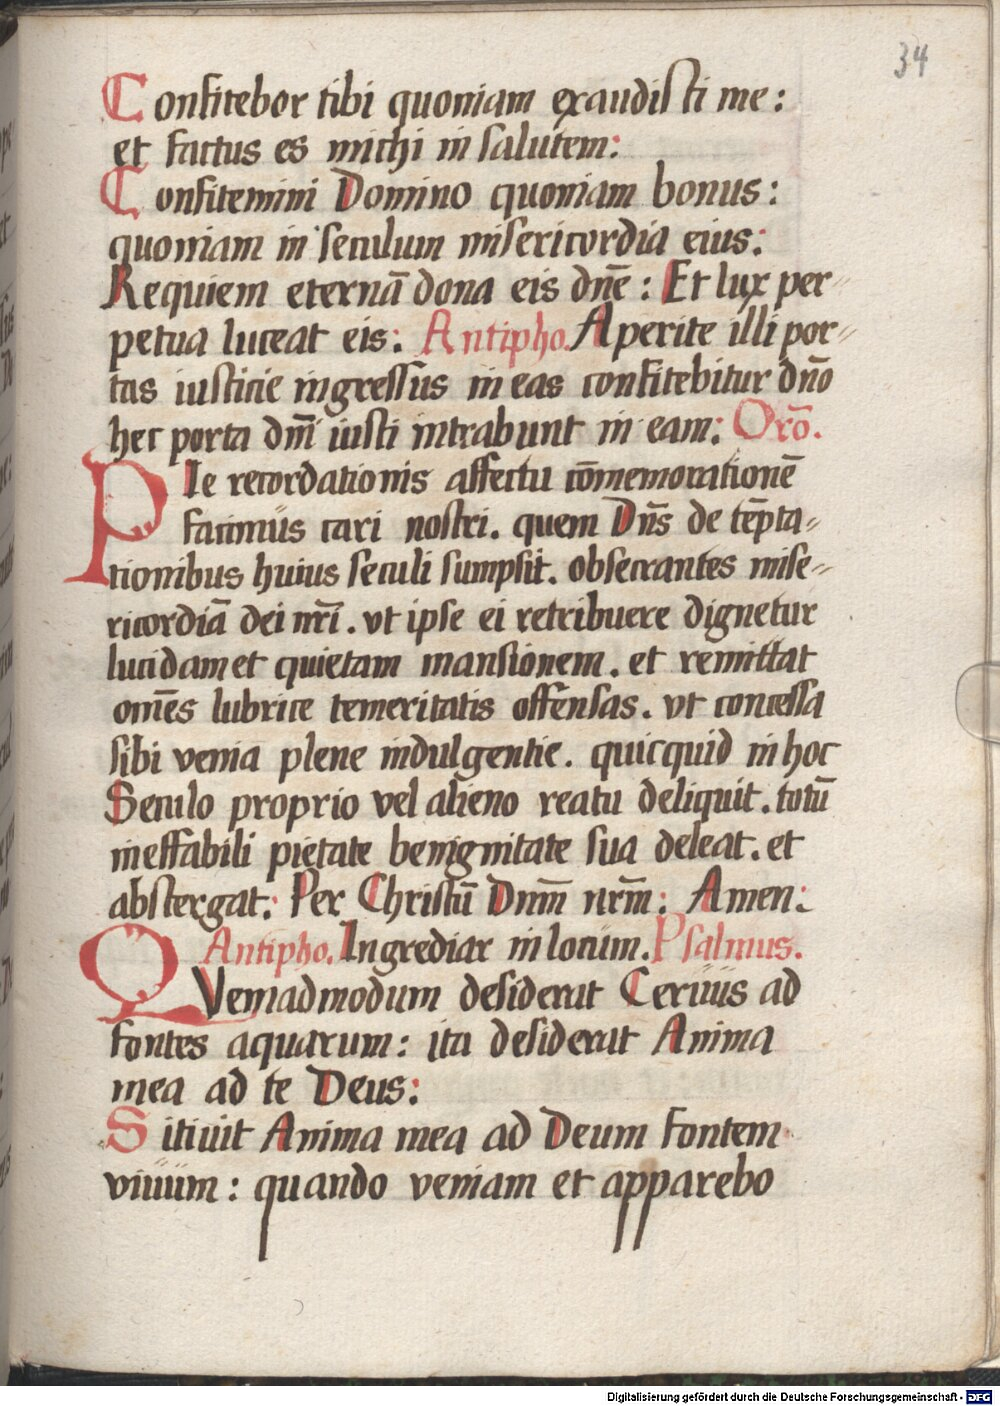 34
Confitebor tibi quoniam exaudisti me:
et factus es michi in salutem:
Confitemini Domino quoniam bonus:
quoniam in seculum misericordia eius:
Requiem eternā dona eis dn̄e: Et lux per⸗
petua luceat eis: Antipho. Aperite illi por⸗
tas iusticie ingressus in eas confitebitur dn̄o
hec porta dn̄i iusti intrabunt in eam: Orō.
PIe recordationis affectu cōmemorationē
facimus cari nostri. quem Dn̄s de tēpta⸗
tionibus huius seculi sumpsit. obsecrantes mise⸗
ricordiā dei nr̄i. vt ipse ei retribuere dignetur
lucidam et quietam mansionem. et remittat
om̄es lubrice temeritatis offensas. vt concessa
sibi venia plene indulgentie. quicquid in hoc
Seculo proprio vel alieno reatu deliquit. totū
ineffabili pietate benignitate sua deleat. et
abstergat: Per Christū Dnm̄ nrm̄: Amen:
Antipho. Ingrediar in locum. Psalmus.
QVemadmodum desiderat Ceruus ad
fontes aquarum: ita desiderat Anima
mea ad te Deus:
Sitiuit Anima mea ad Deum fontem
viuum: quando veniam et apparebo
Digitalisierung gefördert durch die Deutsche Forschungsgemeinschaft - DFG